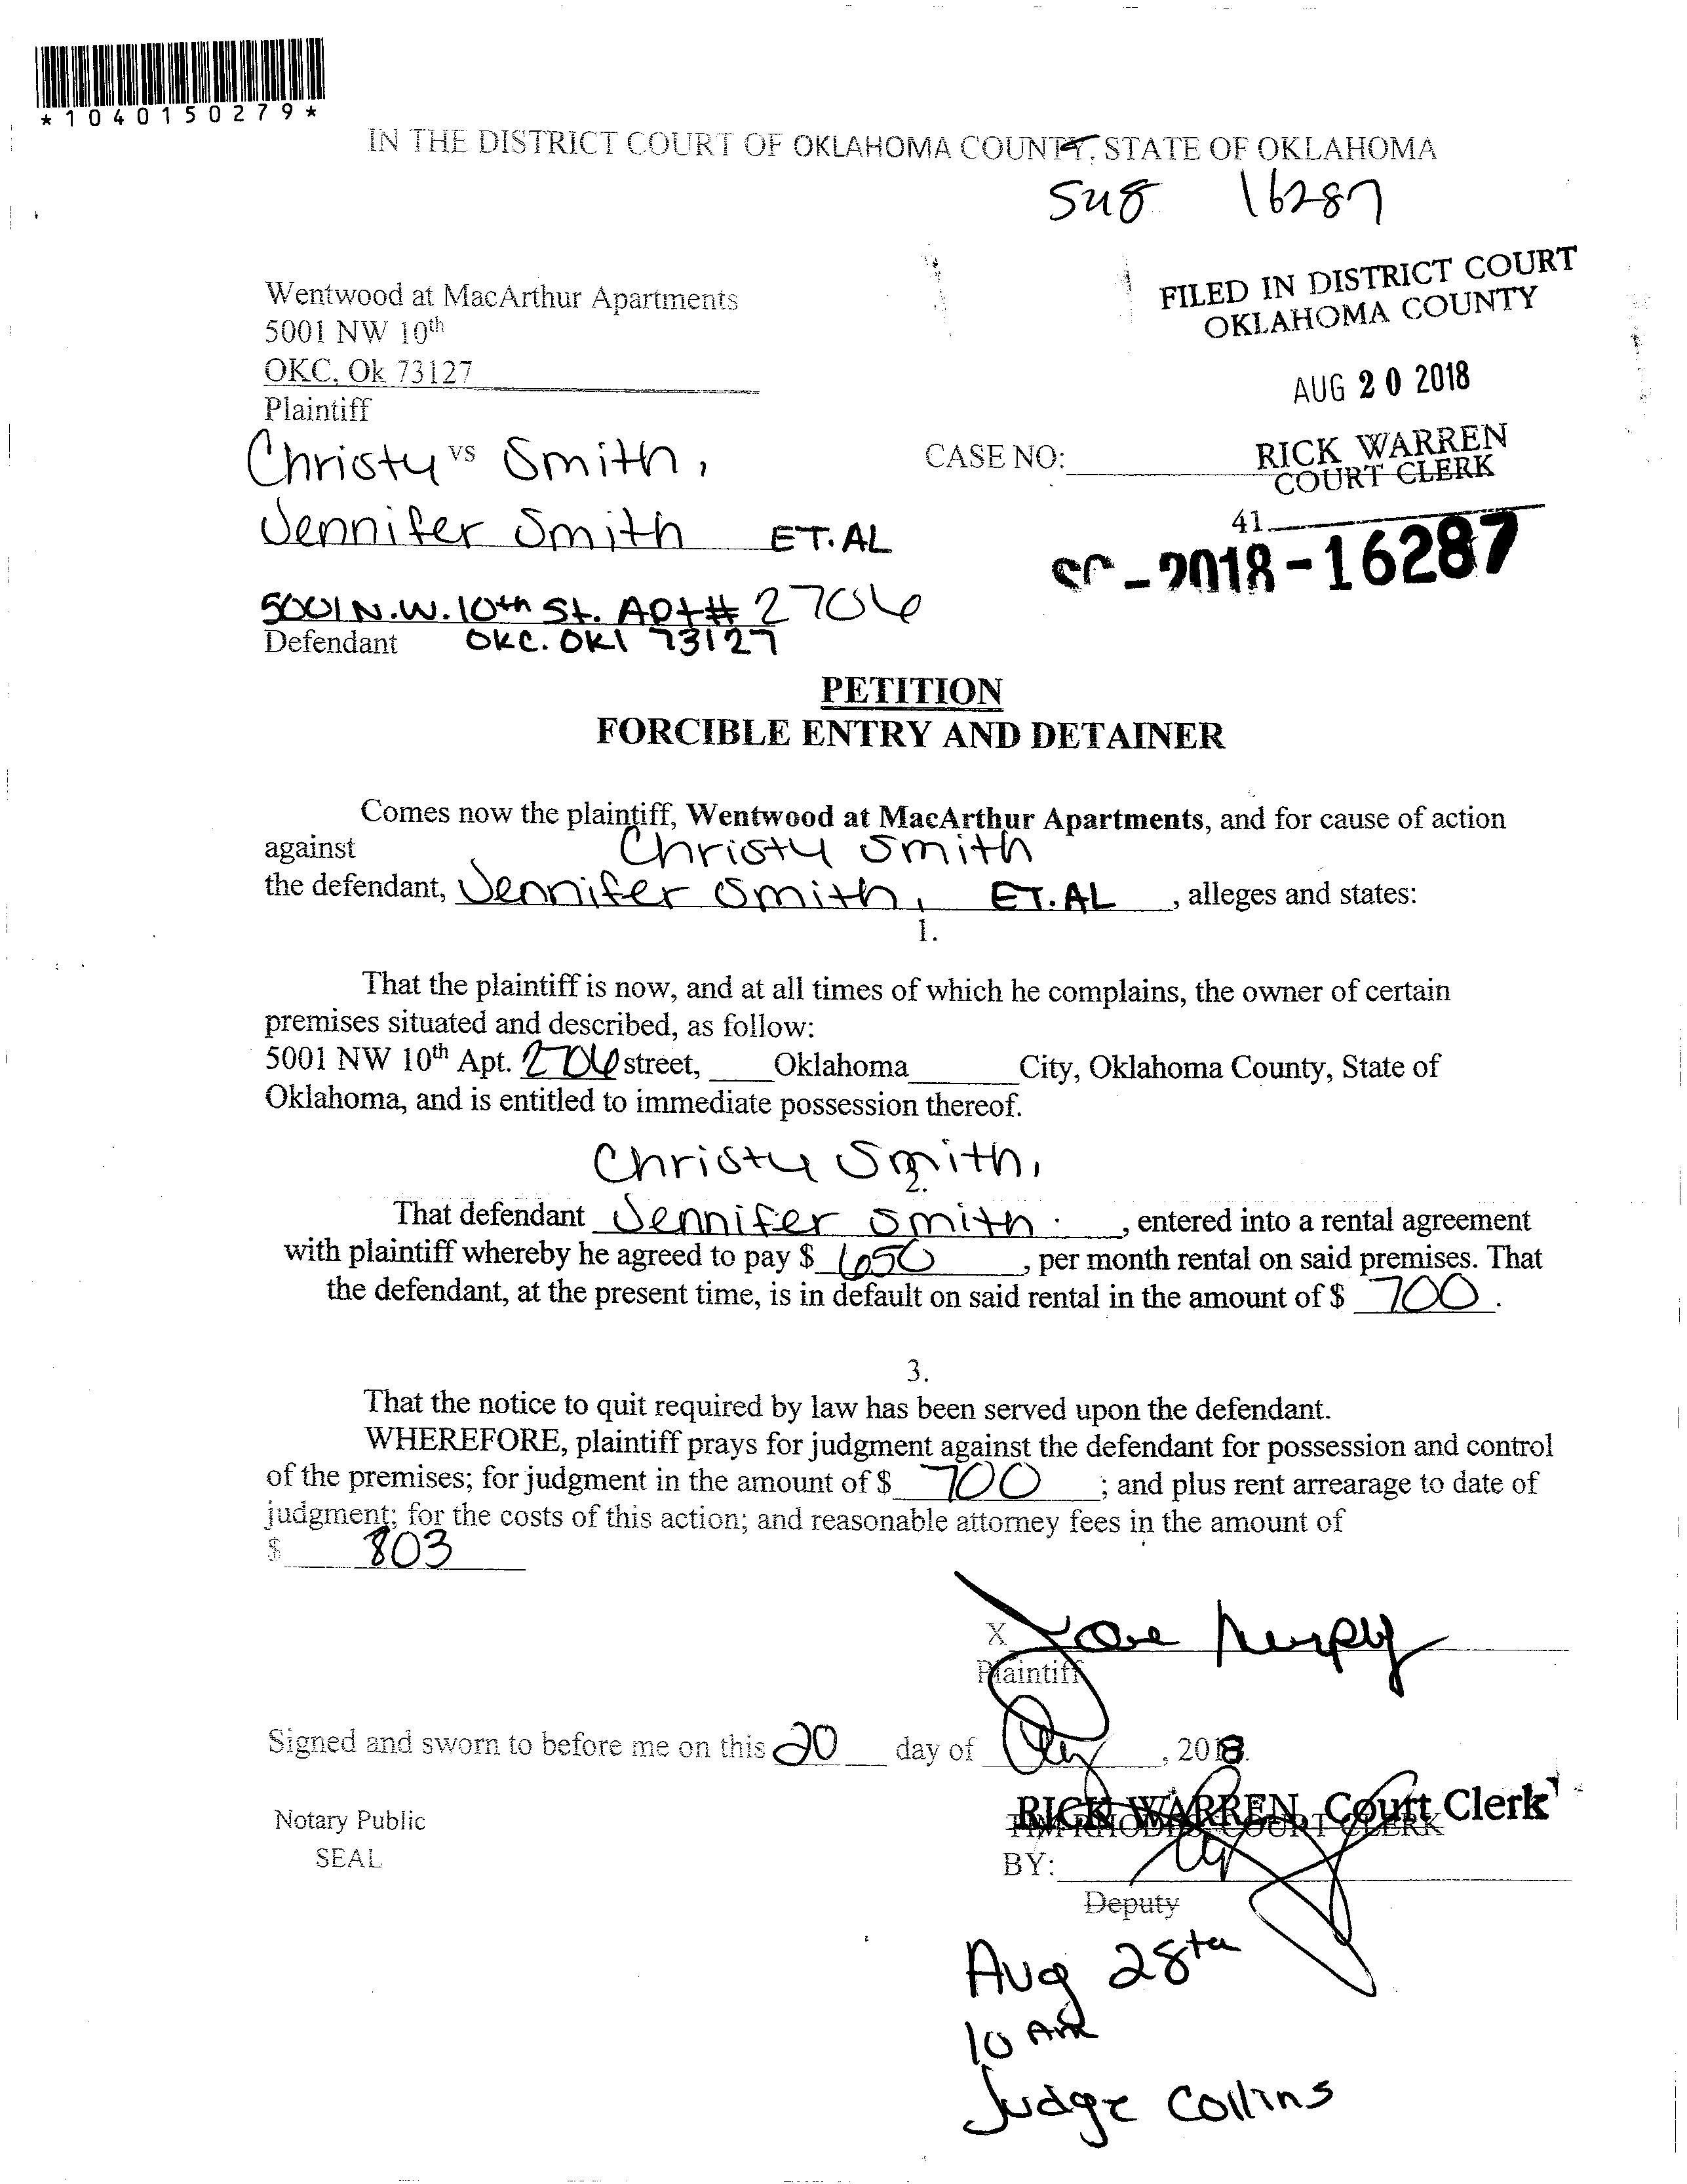 *1040150279*
IN THE DISTRICT COURT OF OKLAHOMA COUNTY, STATE OF OKLAHOMA
16287
Wentwood at MacArthur Apartments
5001 NW 10th
OKC, Ok 73127
Plaintiff
FILED IN DISTRICT COURT
OKLAHOMA COUNTY
AUG 20 2018
RICK WARREN
COURT CLERK
41
vs
Christy Smith,
CASE NO:
Jennifer Smith ET.AL
SC-2018-16287
5001 N.W. 10th St. Apt# 2706
Defendant OKC. OKl 73127
PETITION
FORCIBLE ENTRY AND DETAINER
Comes now the plaintiff, Wentwood at MacArthur Apartments, and for cause of action
against Christy Smith
the defendant, Jennifer Smith, ET.AL , alleges and states:
1.
That the plaintiff is now, and at all times of which he complains, the owner of certain
premises situated and described, as follow:
5001 NW 10th Apt. 2706 street, Oklahoma City, Oklahoma County, State of
Oklahoma, and is entitled to immediate possession thereof.
Christy Smith,
2.
That defendant Jennifer Smith. , entered into a rental agreement
with plaintiff whereby he agreed to pay $ 650 , per month rental on said premises. That
the defendant, at the present time, is in default on said rental in the amount of $ 700 .
3.
That the notice to quit required by law has been served upon the defendant.
WHEREFORE, plaintiff prays for judgment against the defendant for possession and control
of the premises; for judgment in the amount of $ 700 ; and plus rent arrearage to date of
judgment; for the costs of this action; and reasonable attorney fees in the amount of
$ 803
X
Plaintiff
Signed and sworn to before me on this 20 day of Aug, 2018.
RICK WARREN, Court Clerk
TIM RHODES, COURT CLERK
Notary Public
SEAL
BY:
Deputy
Aug 28th
10 AM
Judge Collins